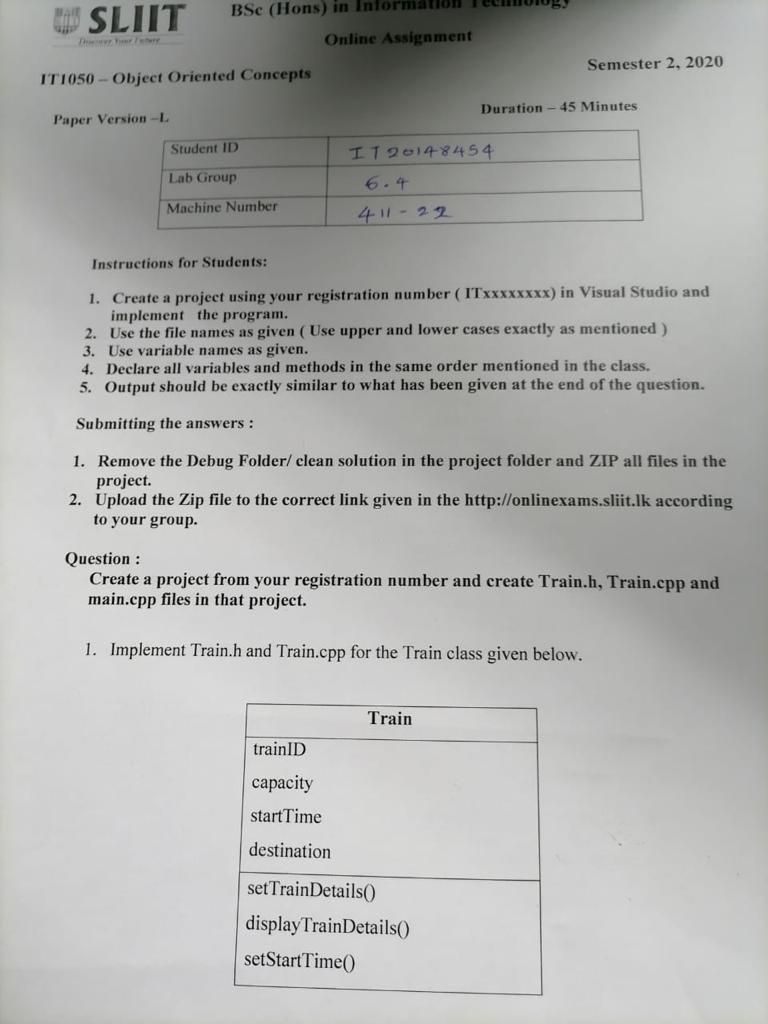 SLIIT
Discover Your Future
BSc (Hons) in Information Technology
Online Assignment
IT1050 – Object Oriented Concepts
Semester 2, 2020
Paper Version –L
Duration – 45 Minutes
Student ID IT20148454
Lab Group 6.4
Machine Number 411-22
Instructions for Students:
1. Create a project using your registration number ( ITxxxxxxxx) in Visual Studio and
implement the program.
2. Use the file names as given ( Use upper and lower cases exactly as mentioned )
3. Use variable names as given.
4. Declare all variables and methods in the same order mentioned in the class.
5. Output should be exactly similar to what has been given at the end of the question.
Submitting the answers :
1. Remove the Debug Folder/ clean solution in the project folder and ZIP all files in the
project.
2. Upload the Zip file to the correct link given in the http://onlinexams.sliit.lk according
to your group.
Question :
Create a project from your registration number and create Train.h, Train.cpp and
main.cpp files in that project.
1. Implement Train.h and Train.cpp for the Train class given below.
Train
trainID
capacity
startTime
destination
setTrainDetails()
displayTrainDetails()
setStartTime()